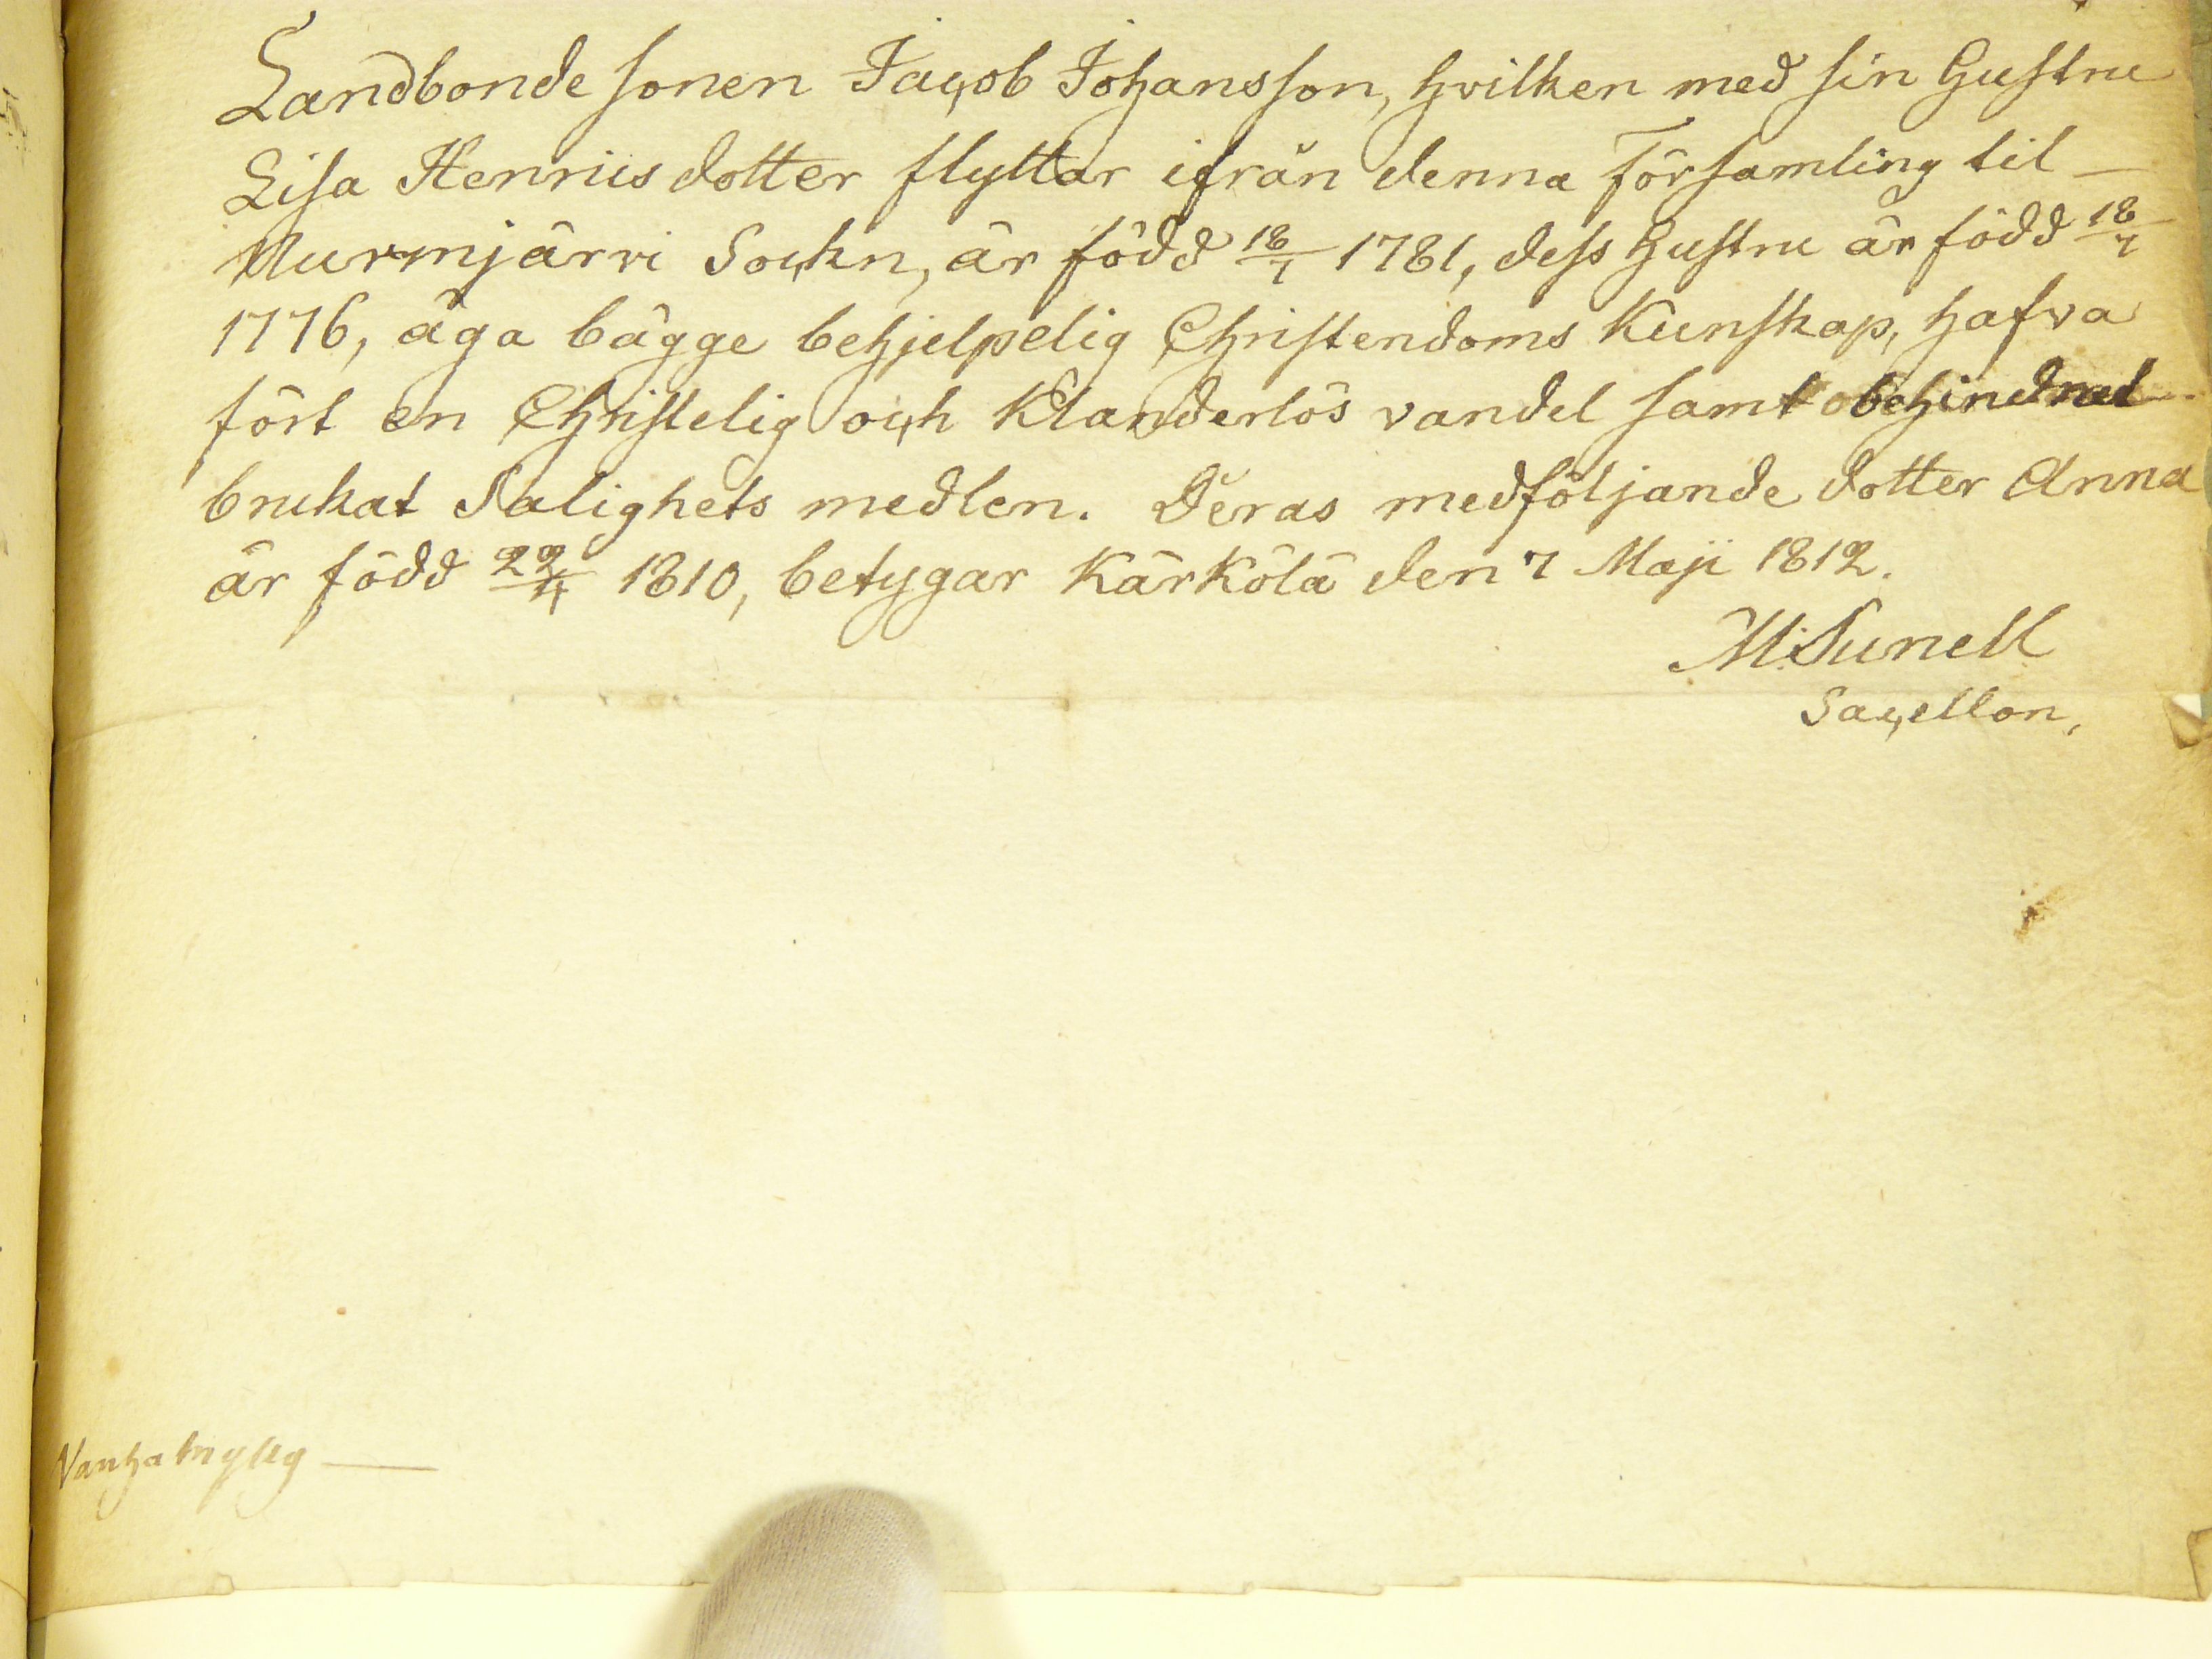 Landbonde sonen Jacob Johansson, hvilken med sin Hustru
Lisa Henricsdotter flyttar ifrån denna Församling til
Nurmjärvi Sockn, är född 18/7 1781, dess Hustru är född 18/7
1776, äga bägge behjelpelig Christendoms Kunskap, hafva
fört en Christelig och Klanderlös vandel samt obehindrad
brukat Salighets medlen. Deras medföljande dotter Anna
är född 22/4 1810, betygar Kärkölä den 7 Maji 1812.
M: Sunell
Sacellan.
Vanhakylly